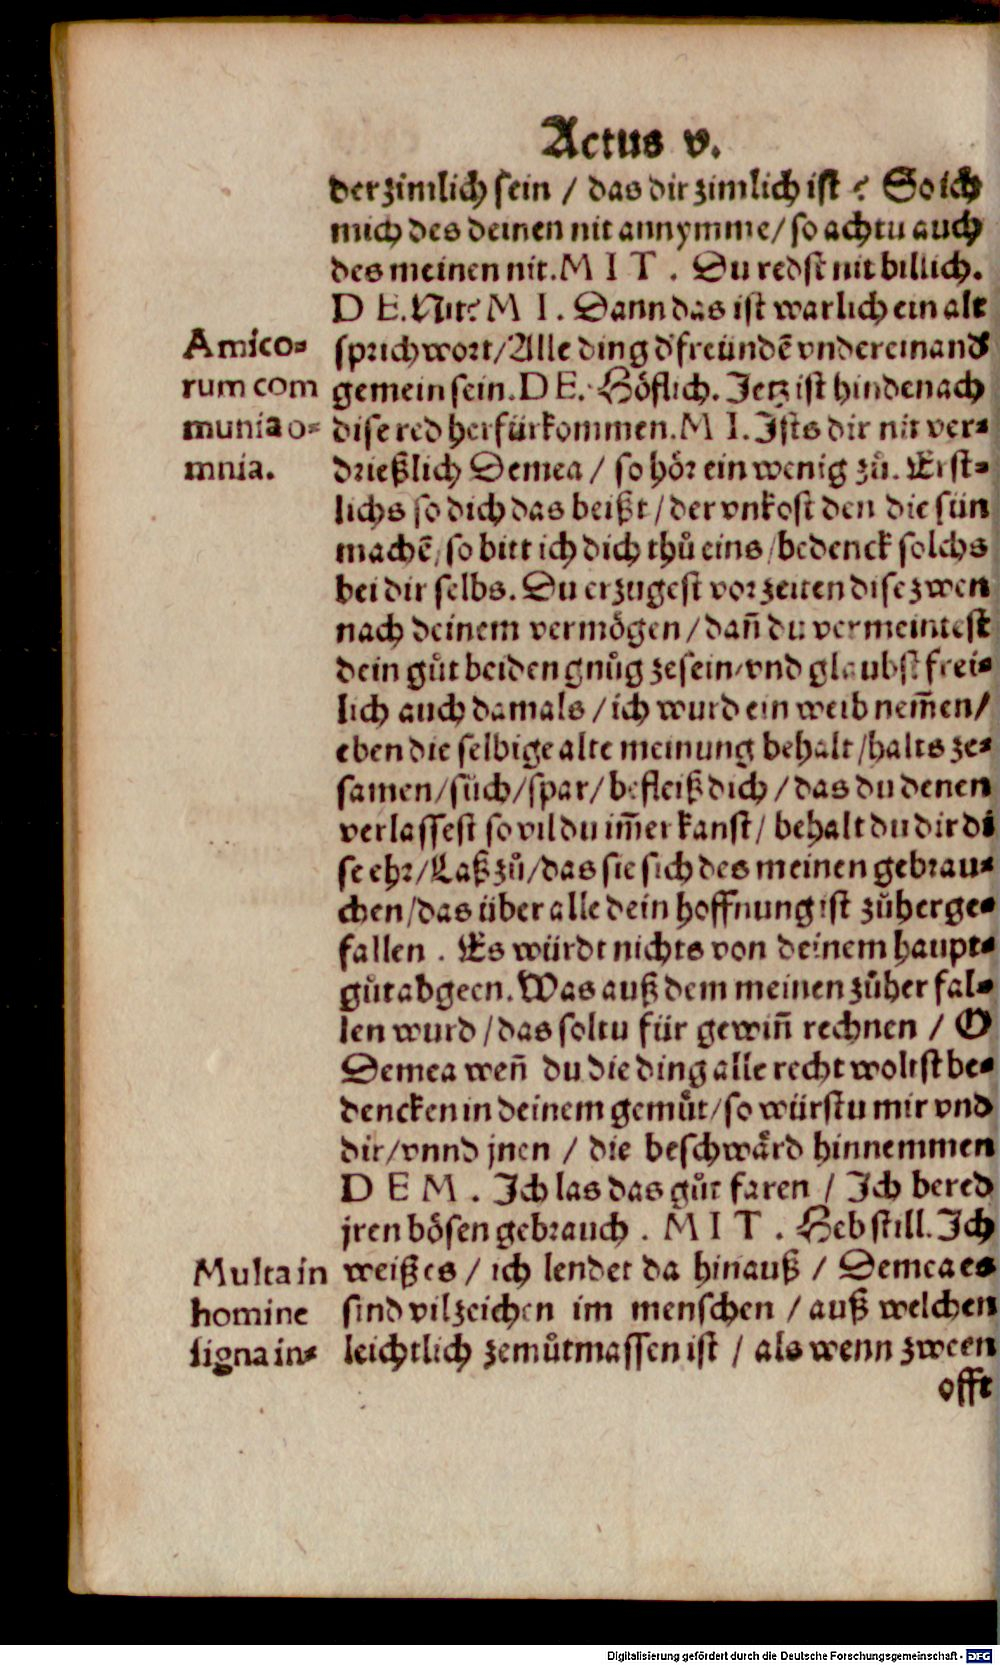 Actus v.
der zimlich sein / das dir zimlich ist? So ich
mich des deinen nit annymme / so achtu auch
des meinen nit. M I T . Du redst nit billich.
D E. Nit? M I . Dann das ist warlich ein alt
Amico=
sprichwort / Alle ding d' freündē vndereinand'
rum com
gemein sein. D E. Höflich. Jetz ist hindenach
munia o=
dise red herfürkommen. M I. Ists dir nit ver=
mnia.
drießlich Demea / so hör ein wenig zů. Erst=
lichs so dich das beißt / der vnkost den die sün
machē / so bitt ich dich thů eins / bedenck solchs
bei dir selbs. Du erzugest vor zeiten dise zwen
nach deinem vermögen / dañ du vermeintest
dein gůt beiden gnůg zesein / vnd glaubst frei=
lich auch damals / ich wurd ein weib nem̃en /
eben die selbige alte meinung behalt / halts ze=
samen / sůch / spar / befleiß dich / das du denen
verlassest so vil du im̃er kanst / behalt du dir di
se ehr / Laß zů / das sie sich des meinen gebrau=
chen / das über alle dein hoffnung ist zůherge=
fallen . Es würdt nichts von deinem haupt=
gůt abgeen. Was auß dem meinen zůher fal=
len wurd / das soltu für gewiñ rechnen / O
Demea weñ du die ding alle recht woltst be=
dencken in deinem gemůt / so würstu mir vnd
dir / vnnd jnen / die beschwärd hinnemmen
D E M . Ich las das gůt faren / Ich bered
jren bösen gebrauch . M I T . Heb still. Ich
Multa in
weiß es / ich lendet da hinauß / Demea es
homine
sind vil zeichen im menschen / auß welchen
signa in=
leichtlich zemůtmassen ist / als wenn zween
offt
Digitalisierung gefördert durch die Deutsche Forschungsgemeinschaft - DFG